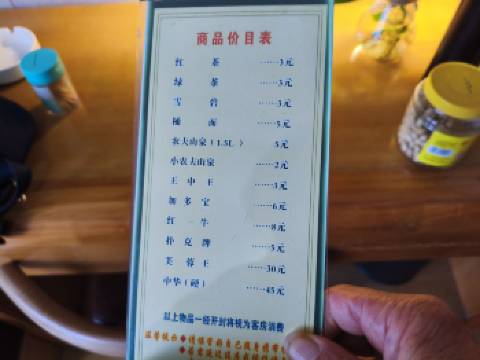 商品价目表
红 茶 ……3元
绿 茶 ……3元
雪 碧 ……3元
桶 面 ……5元
农夫山泉（1.5L） 5元
小农夫山泉 ……2元
王 中 王 ……3元
加 多 宝 ……6元
红 一 牛 ……8元
扑 克 牌 ……5元
芙 蓉 王 ……30元
中华（硬） ……45元
以上物品一经开封将视为客房消费
温馨提示